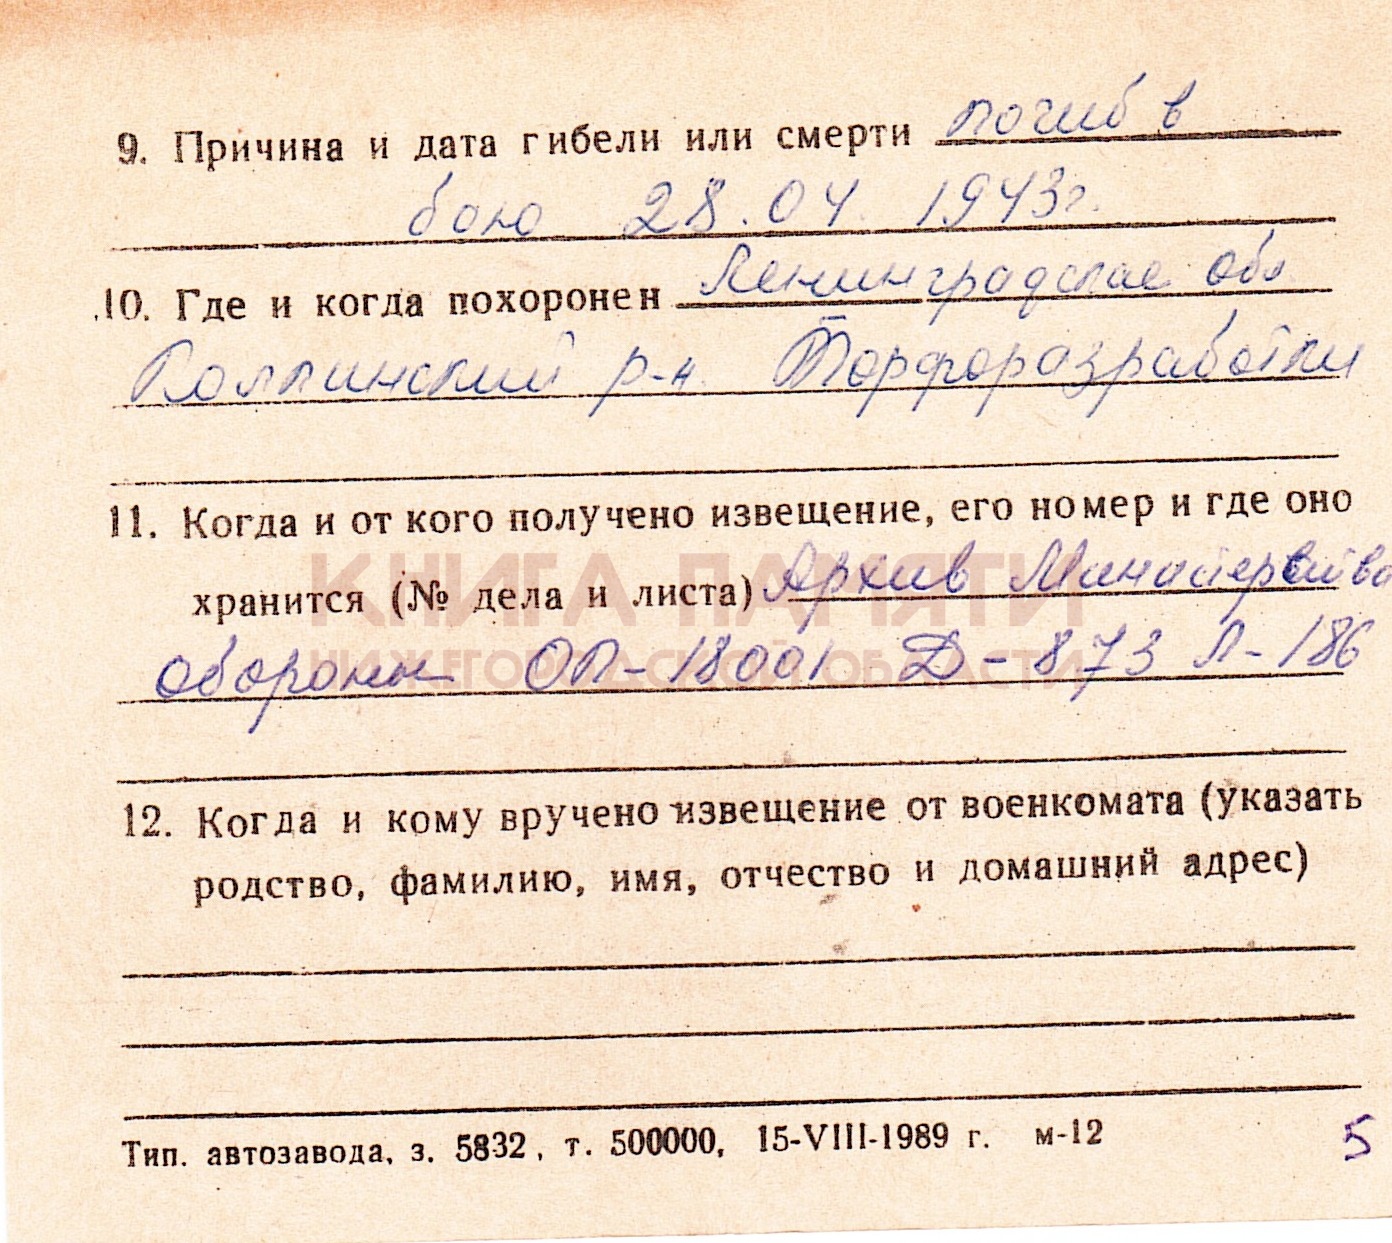 9. Причина и дата гибели или смерти погиб в
бою 28.04. 1943г.
10. Где и когда похоронен Ленинградская обл
Колпинский р-н. Торфоразработки
11. Когда и от кого получено извещение, его номер и где оно
КНИГА ПАМЯТИ
хранится (№ дела и листа) Архив Министерства
НИЖЕГОРОДСКОЙ ОБЛАСТИ
обороны ОП-18001 Д-873 Л-186
12. Когда и кому вручено извещение от военкомата (указать
родство, фамилию, имя, отчество и домашний адрес)
Тип. автозавода, з. 5832, т. 500000, 15-VIII-1989 г. м-12
5